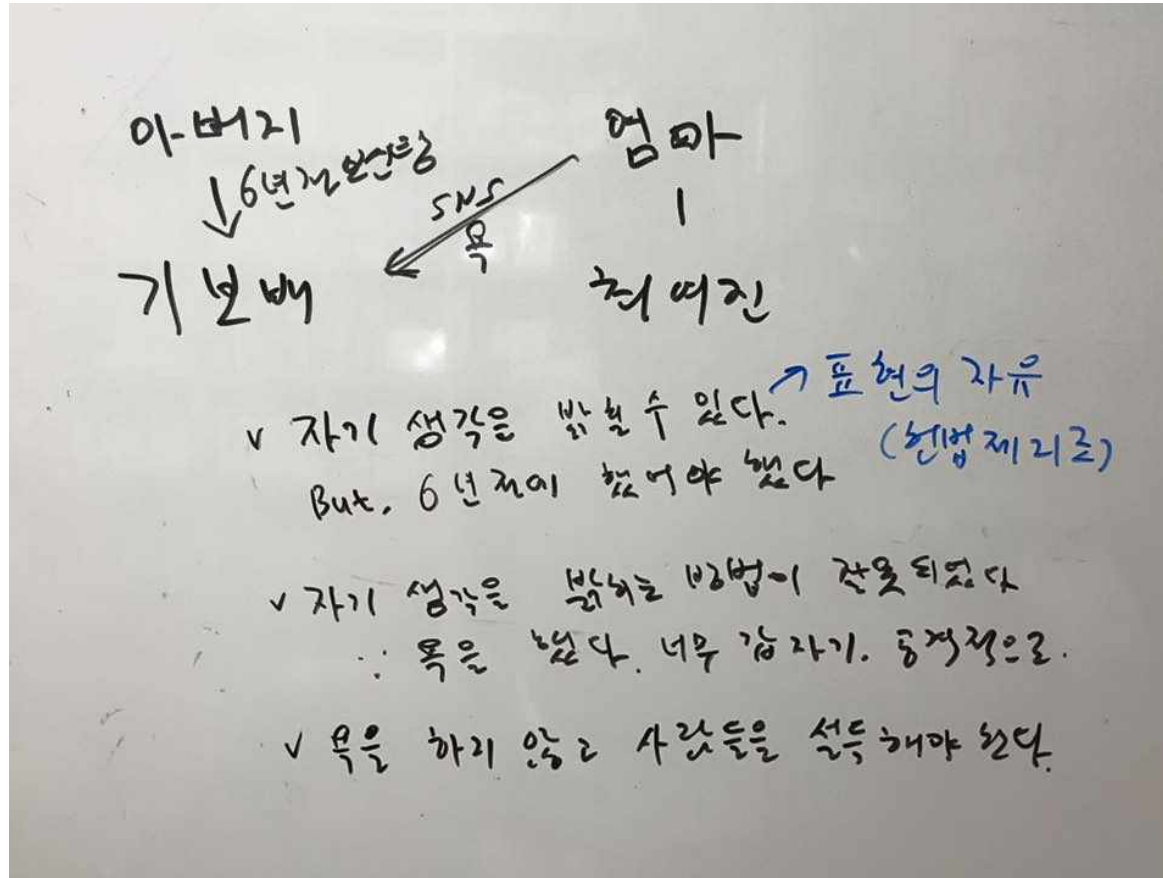 아버지 엄마
6년전 보신탕
SNS
욕
기보배 최여진
v 자기 생각을 밝힐 수 있다. ↗ 표현의 자유
(헌법 제21조)
But, 6년전에 했어야 했다
v 자기 생각을 밝히는 방법이 잘못되었다
∵ 욕을 했다. 너무 갑자기. 공격적으로.
v 욕을 하지 않고 사람들을 설득해야 한다.